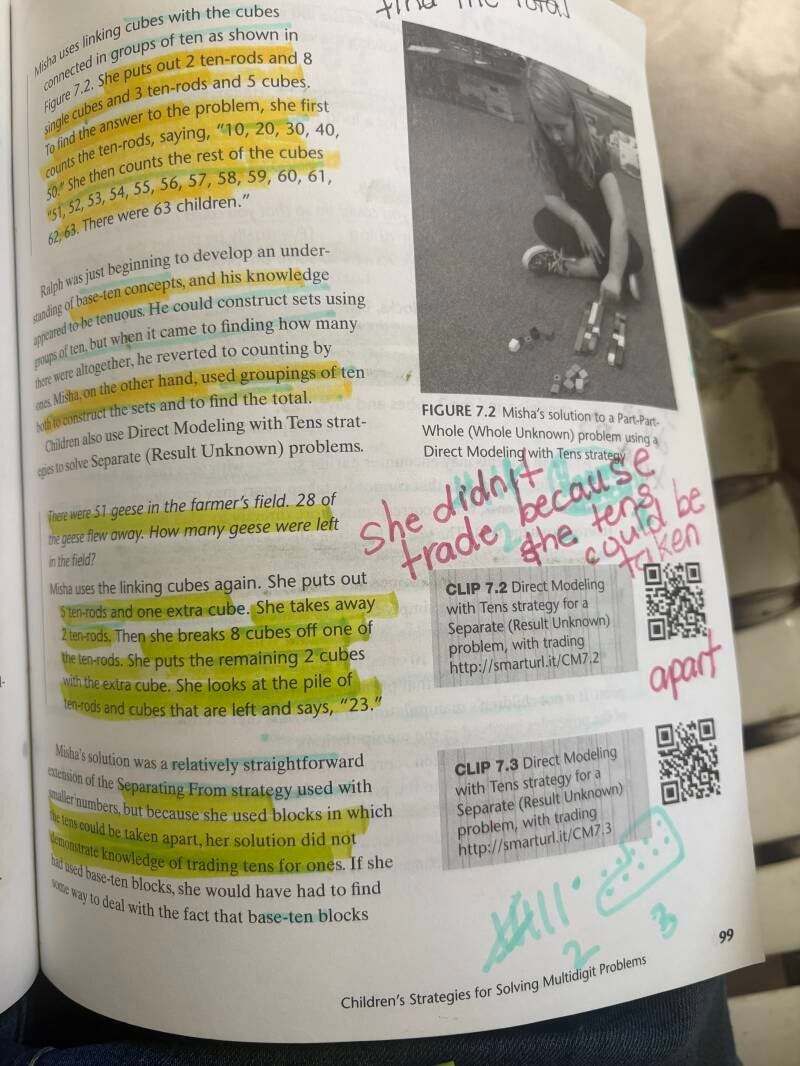 find the total
Misha uses linking cubes with the cubes
connected in groups of ten as shown in
Figure 7.2. She puts out 2 ten-rods and 8
single cubes and 3 ten-rods and 5 cubes.
To find the answer to the problem, she first
counts the ten-rods, saying, "10, 20, 30, 40,
50." She then counts the rest of the cubes
"51, 52, 53, 54, 55, 56, 57, 58, 59, 60, 61,
62, 63. There were 63 children."
Ralph was just beginning to develop an under-
standing of base-ten concepts, and his knowledge
appeared to be tenuous. He could construct sets using
groups of ten, but when it came to finding how many
there were altogether, he reverted to counting by
ones. Misha, on the other hand, used groupings of ten
both to construct the sets and to find the total.
Children also use Direct Modeling with Tens strat-
egies to solve Separate (Result Unknown) problems.
There were 51 geese in the farmer's field. 28 of
the geese flew away. How many geese were left
in the field?
Misha uses the linking cubes again. She puts out
5 ten-rods and one extra cube. She takes away
2 ten-rods. Then she breaks 8 cubes off one of
the ten-rods. She puts the remaining 2 cubes
with the extra cube. She looks at the pile of
ten-rods and cubes that are left and says, "23."
Misha's solution was a relatively straightforward
extension of the Separating From strategy used with
smaller numbers, but because she used blocks in which
the tens could be taken apart, her solution did not
demonstrate knowledge of trading tens for ones. If she
had used base-ten blocks, she would have had to find
some way to deal with the fact that base-ten blocks
FIGURE 7.2 Misha's solution to a Part-Part-
Whole (Whole Unknown) problem using a
Direct Modeling with Tens strategy
she didn't
trade because
the tens
could be
taken
apart
CLIP 7.2 Direct Modeling
with Tens strategy for a
Separate (Result Unknown)
problem, with trading
http://smarturl.it/CM7.2
CLIP 7.3 Direct Modeling
with Tens strategy for a
Separate (Result Unknown)
problem, with trading
http://smarturl.it/CM7.3
2 3
99
Children's Strategies for Solving Multidigit Problems